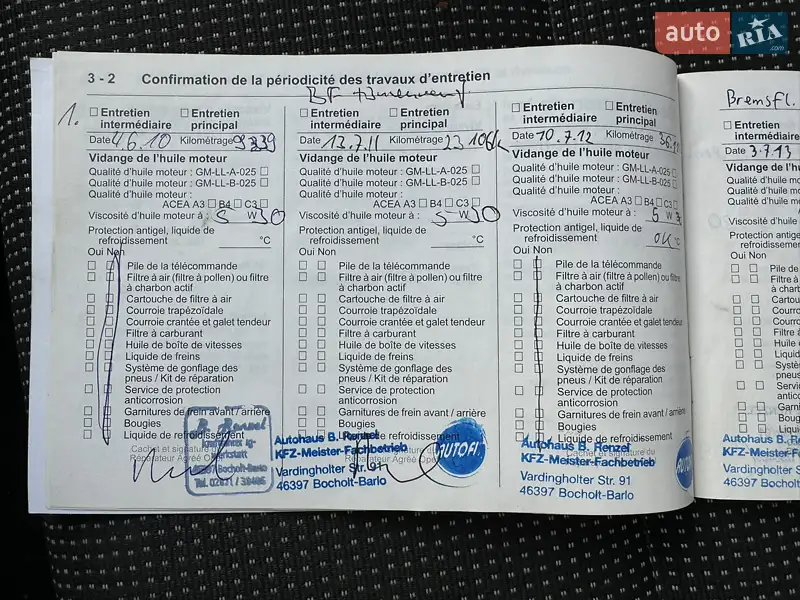 auto RIA .com
3 - 2 Confirmation de la périodicité des travaux d'entretien
BF
1.
Entretien intermédiaire
Entretien principal
Date 4.6.10 Kilométrage
Vidange de l'huile moteur
Qualité d'huile moteur : GM-LL-A-025
Qualité d'huile moteur : GM-LL-B-025
Qualité d'huile moteur :
ACEA A3 B4 C3
Viscosité d'huile moteur à : 5 W 30
Protection antigel, liquide de
refroidissement °C
Oui Non
Pile de la télécommande
Filtre à air (filtre à pollen) ou filtre
à charbon actif
Cartouche de filtre à air
Courroie trapézoïdale
Courroie crantée et galet tendeur
Filtre à carburant
Huile de boîte de vitesses
Liquide de freins
Système de gonflage des
pneus / Kit de réparation
Service de protection
anticorrosion
Garnitures de frein avant / arrière
Bougies
Liquide de refroidissement
Cachet et signature
Réparateur Agréé Opel
B. Renzel
Tel. 02871 / 38486
Entretien intermédiaire
Entretien principal
Date 13.7.11 Kilométrage
Vidange de l'huile moteur
Qualité d'huile moteur : GM-LL-A-025
Qualité d'huile moteur : GM-LL-B-025
Qualité d'huile moteur :
ACEA A3 B4 C3
Viscosité d'huile moteur à : 5 W 30
Protection antigel, liquide de
refroidissement °C
Oui Non
Pile de la télécommande
Filtre à air (filtre à pollen) ou filtre
à charbon actif
Cartouche de filtre à air
Courroie trapézoïdale
Courroie crantée et galet tendeur
Filtre à carburant
Huile de boîte de vitesses
Liquide de freins
Système de gonflage des
pneus / Kit de réparation
Service de protection
anticorrosion
Garnitures de frein avant / arrière
Bougies
Liquide de refroidissement
Autohaus B. Renzel
KFZ-Meister-Fachbetrieb
Vardingholter Str.
46397 Bocholt-Barlo
AUTOFI
Entretien intermédiaire
Entretien principal
Date 10.7.12 Kilométrage
Vidange de l'huile moteur
Qualité d'huile moteur : GM-LL-A-025
Qualité d'huile moteur : GM-LL-B-025
Qualité d'huile moteur :
ACEA A3 B4 C3
Viscosité d'huile moteur à : 5 W
Protection antigel, liquide de
refroidissement OK °C
Oui Non
Pile de la télécommande
Filtre à air (filtre à pollen) ou filtre
à charbon actif
Cartouche de filtre à air
Courroie trapézoïdale
Courroie crantée et galet tendeur
Filtre à carburant
Huile de boîte de vitesses
Liquide de freins
Système de gonflage des
pneus / Kit de réparation
Service de protection
anticorrosion
Garnitures de frein avant / arrière
Bougies
Liquide de refroidissement
Cachet et signature du
Autohaus B. Renzel
KFZ-Meister-Fachbetrieb
Vardingholter Str. 91
46397 Bocholt-Barlo
AUTO
Bremsfl.
Entretien
intermédiaire
Date 3.7.13
Vidange de l'huile
Qualité d'huile mot
Qualité d'huile mo
Qualité d'huile mo
Viscosité d'huile
Protection antige
refroidis
Oui Non
Pile de
Filtre à
à charb
Cartou
Courro
Courr
Filtre
Huile
Liqui
Syst
pneu
Ser
anti
Ga
Bo
Li
Autohaus B.
KFZ-Meister
Vardingholte
46397 Boc